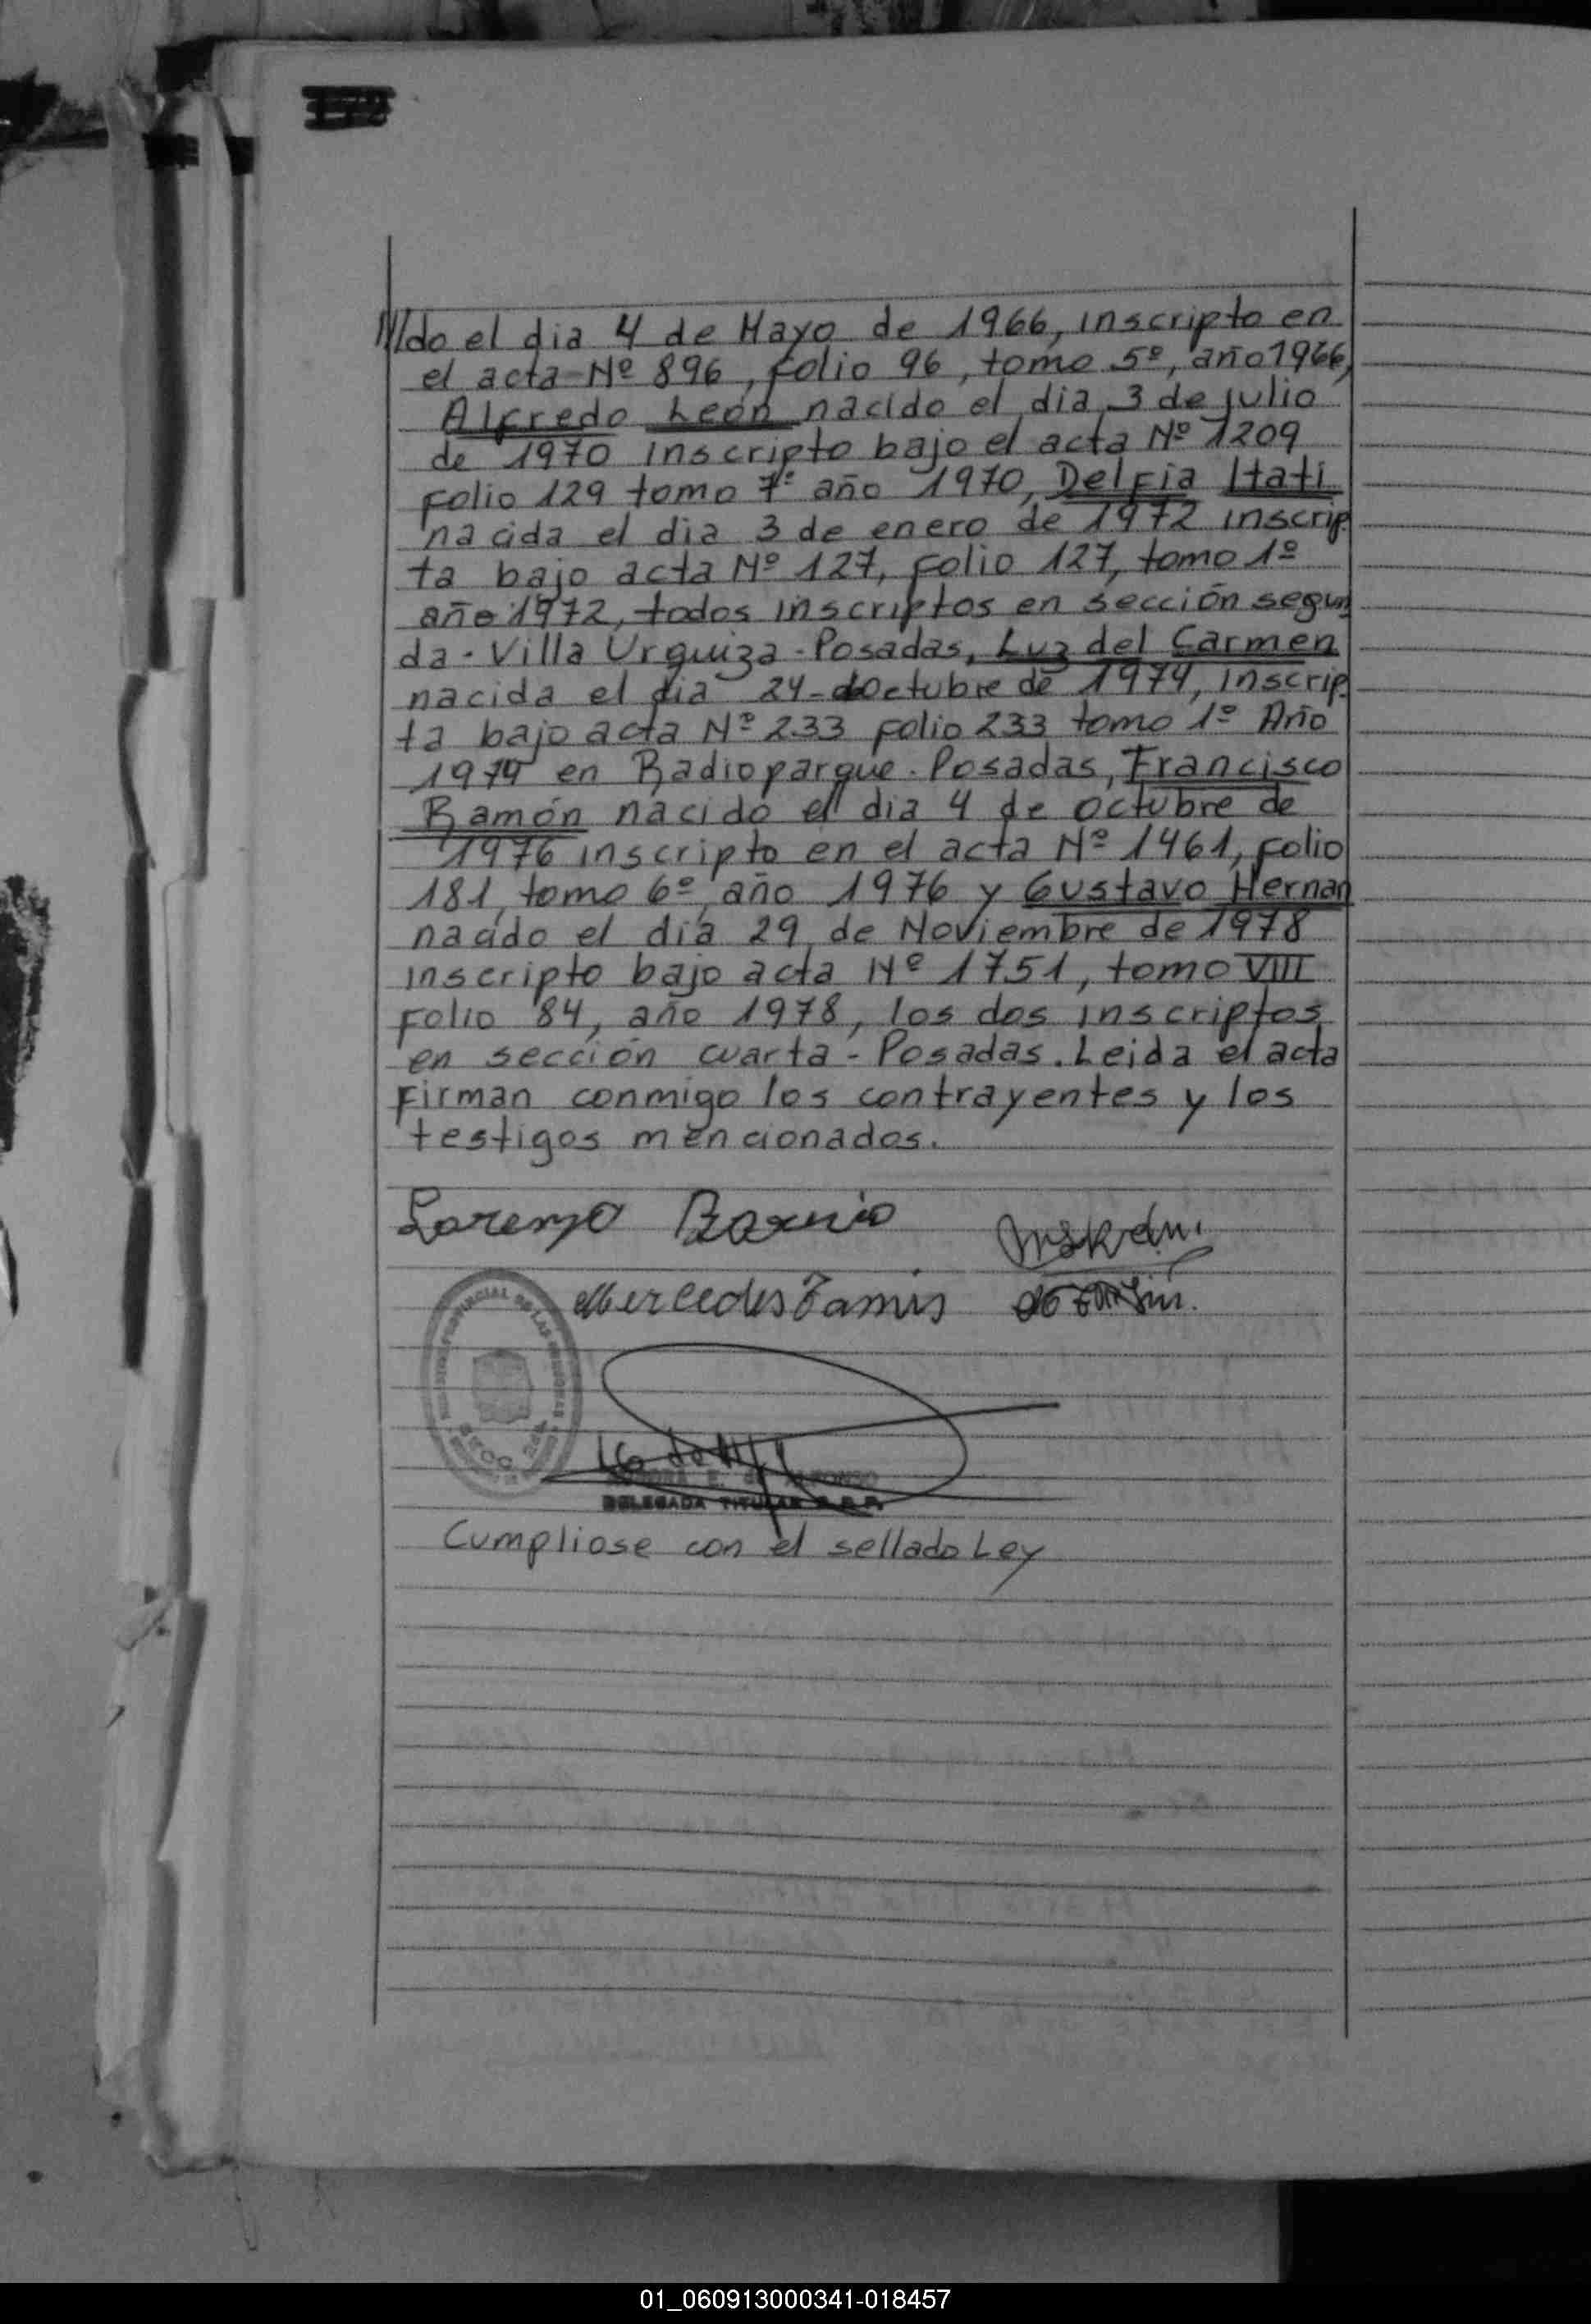 do el dia 4 de Mayo de 1966, inscripto en
el acta Nº 896, folio 96, tomo 5º, año 1966,
Alfredo León nacido el dia 3 de julio
de 1970 inscripto bajo el acta Nº 1209
Folio 129 tomo 7º año 1970, Delfia Itati
nacida el dia 3 de enero de 1972 inscrip
ta bajo acta Nº 127, folio 127, tomo 1º
año 1972, todos inscriptos en sección segun
da - Villa Urquiza - Posadas, Luz del Carmen
nacida el dia 24 - Octubre de 1974, inscrip
ta bajo acta Nº 233 folio 233 tomo 1º Año
1974 en Radioparque - Posadas, Francisco
Ramón nacido el dia 4 de octubre de
1976 inscripto en el acta Nº 1461, folio
181, tomo 6º, año 1976 y Gustavo Hernan
nacido el día 29 de Noviembre de 1978
inscripto bajo acta Nº 1751, tomo VIII
Folio 84, año 1978, los dos inscriptos
en sección cuarta - Posadas. Leida el acta
Firman conmigo los contrayentes y los
testigos mencionados.
Lorenzo
Mercedes
DELEGADA TITULAR
Cumpliose con el sellado Ley
01_060913000341-018457